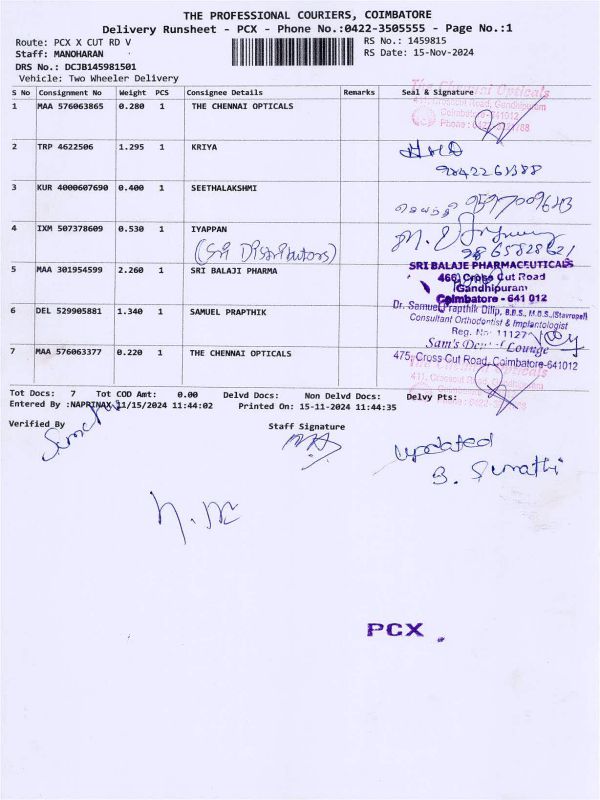 THE PROFESSIONAL COURIERS, COIMBATORE
Delivery Runsheet - PCX - Phone No.:0422-3505555 - Page No.:1
Route: PCX X CUT RD V
RS No.: 1459815
Staff: MANOHARAN
RS Date: 15-Nov-2024
DRS No.: DCJB145981501
Vehicle: Two Wheeler Delivery
S No Consignment No Weight PCS Consignee Details Remarks Seal & Signature
1 MAA 576063865 0.280 1 THE CHENNAI OPTICALS
The Chennai Opticals
Coimbatore-641012
2 TRP 4622506 1.295 1 KRIYA
9842261388
3 KUR 4000607690 0.400 1 SEETHALAKSHMI
4 IXM 507378609 0.530 1 IYAPPAN
(Sri Distributors)
9865828621
5 MAA 301954599 2.260 1 SRI BALAJI PHARMA
SRI BALAJE PHARMACEUTICALS
466, Cross Cut Road
Gandhipuram
Coimbatore - 641 012
6 DEL 529905881 1.340 1 SAMUEL PRAPTHIK
Dr. Samuel Prapthik Dilip, B.D.S., M.D.S.,(Stavropol)
Consultant Orthodontist & Implantologist
Reg. No: 11127
Sam's Dental Lounge
475, Cross Cut Road, Coimbatore-641012
7 MAA 576063377 0.220 1 THE CHENNAI OPTICALS
Tot Docs: 7 Tot COD Amt: 0.00 Delvd Docs: Non Delvd Docs: Delvy Pts:
Entered By :NAPRINAX 11/15/2024 11:44:02 Printed On: 15-11-2024 11:44:35
Verified By
Staff Signature
updated
B. Sumathi
PCX